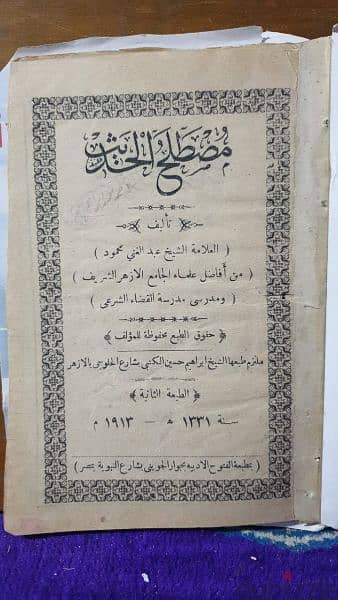 مُصْطَلَحُ الْحَدِيثِ
تأليف
( العلامة الشيخ عبد الغني محمود )
( من أفاضل علماء الجامع الازهر الشريف )
( ومدرسى مدرسة القضاء الشرعى )
﴿ حقوق الطبع محفوظة للمؤلف ﴾
ملتزم طبعها الشيخ ابراهيم حسين الكتبى بشارع الحلوجى بالازهر
﴿ الطبعة الثانية ﴾
سنة ١٣٣١ ﻫ — ١٩١٣ م
( بمطبعة الفتوح الادبيه بجوار الجوينى بشارع النبوية بمصر )